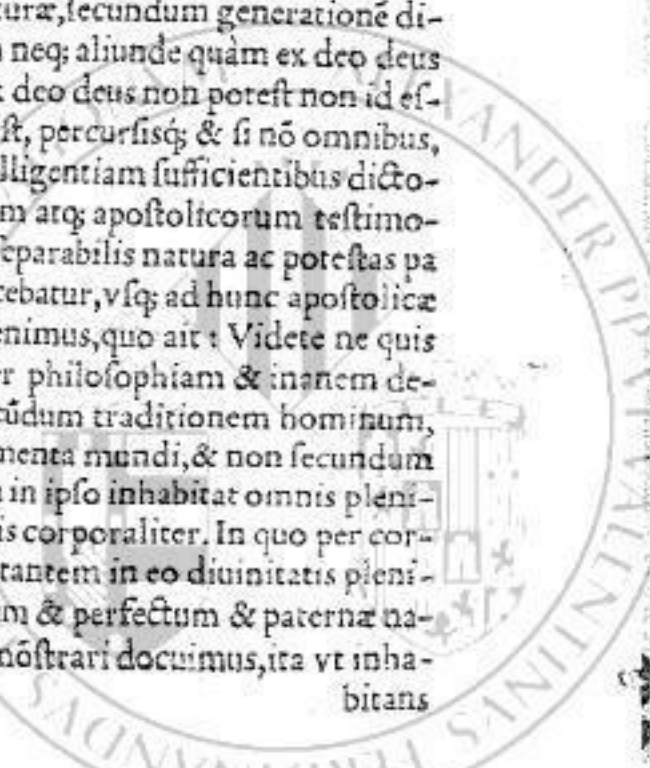 turæ,ſecundum generationē di-
neq; aliunde quàm ex deo deus
deo deus non poteſt non id eſ-
ſt, percurſisq́; & ſi nō omnibus,
lligentiam ſufficientibus dicto-
m atq; apoſtolicorum teſtimo-
ſeparabilis natura ac poteſtas pa
cebatur,vſq; ad hunc apoſtolicæ
enimus,quo ait : Videte ne quis
r philoſophiam & inanem de-
cūdum traditionem hominum,
menta mundi,& non ſecundum
in ipſo inhabitat omnis pleni-
is corporaliter. In quo per cor-
tantem in eo diuinitatis pleni-
m & perfectum & paternæ na-
nōſtrari docuimus,ita vt inha-
bitans
ALEXANDER PP VI VALENTINVS FERDINANDVS